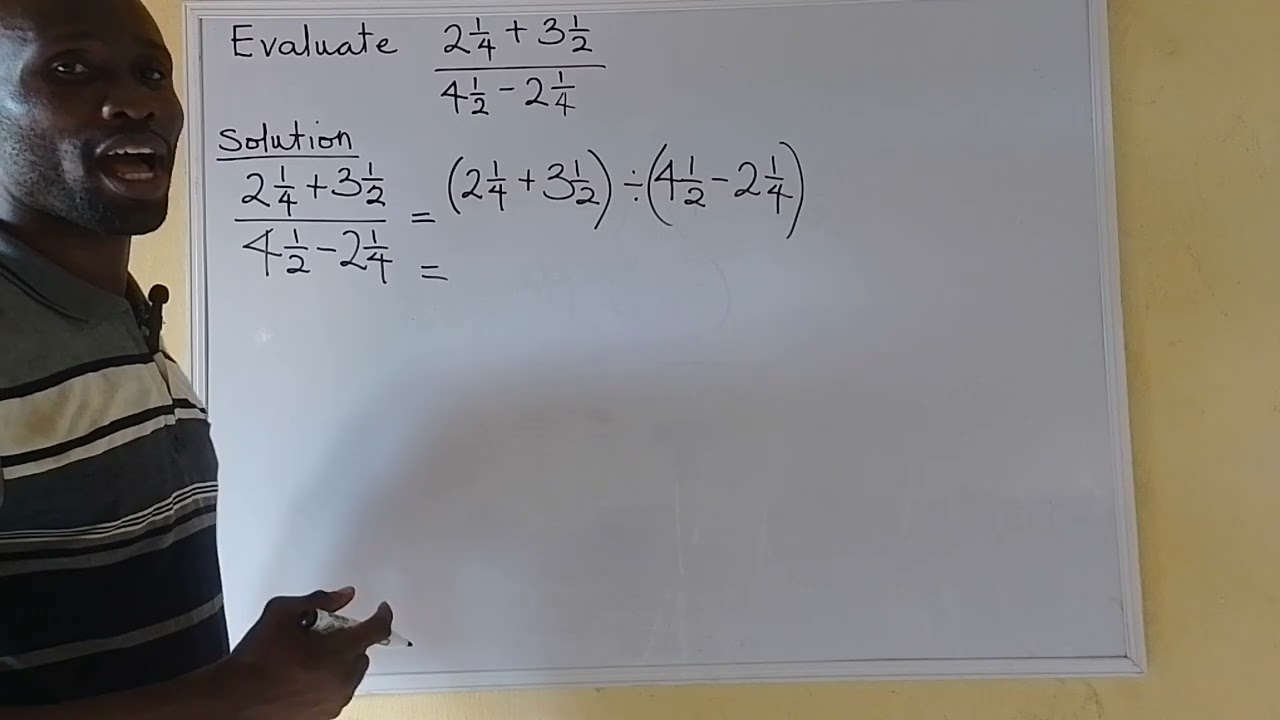 Evaluate (2 1/4 + 3 1/2)/(4 1/2 - 2 1/4)
Solution
(2 1/4 + 3 1/2)/(4 1/2 - 2 1/4) = (2 1/4 + 3 1/2) ÷ (4 1/2 - 2 1/4)
=